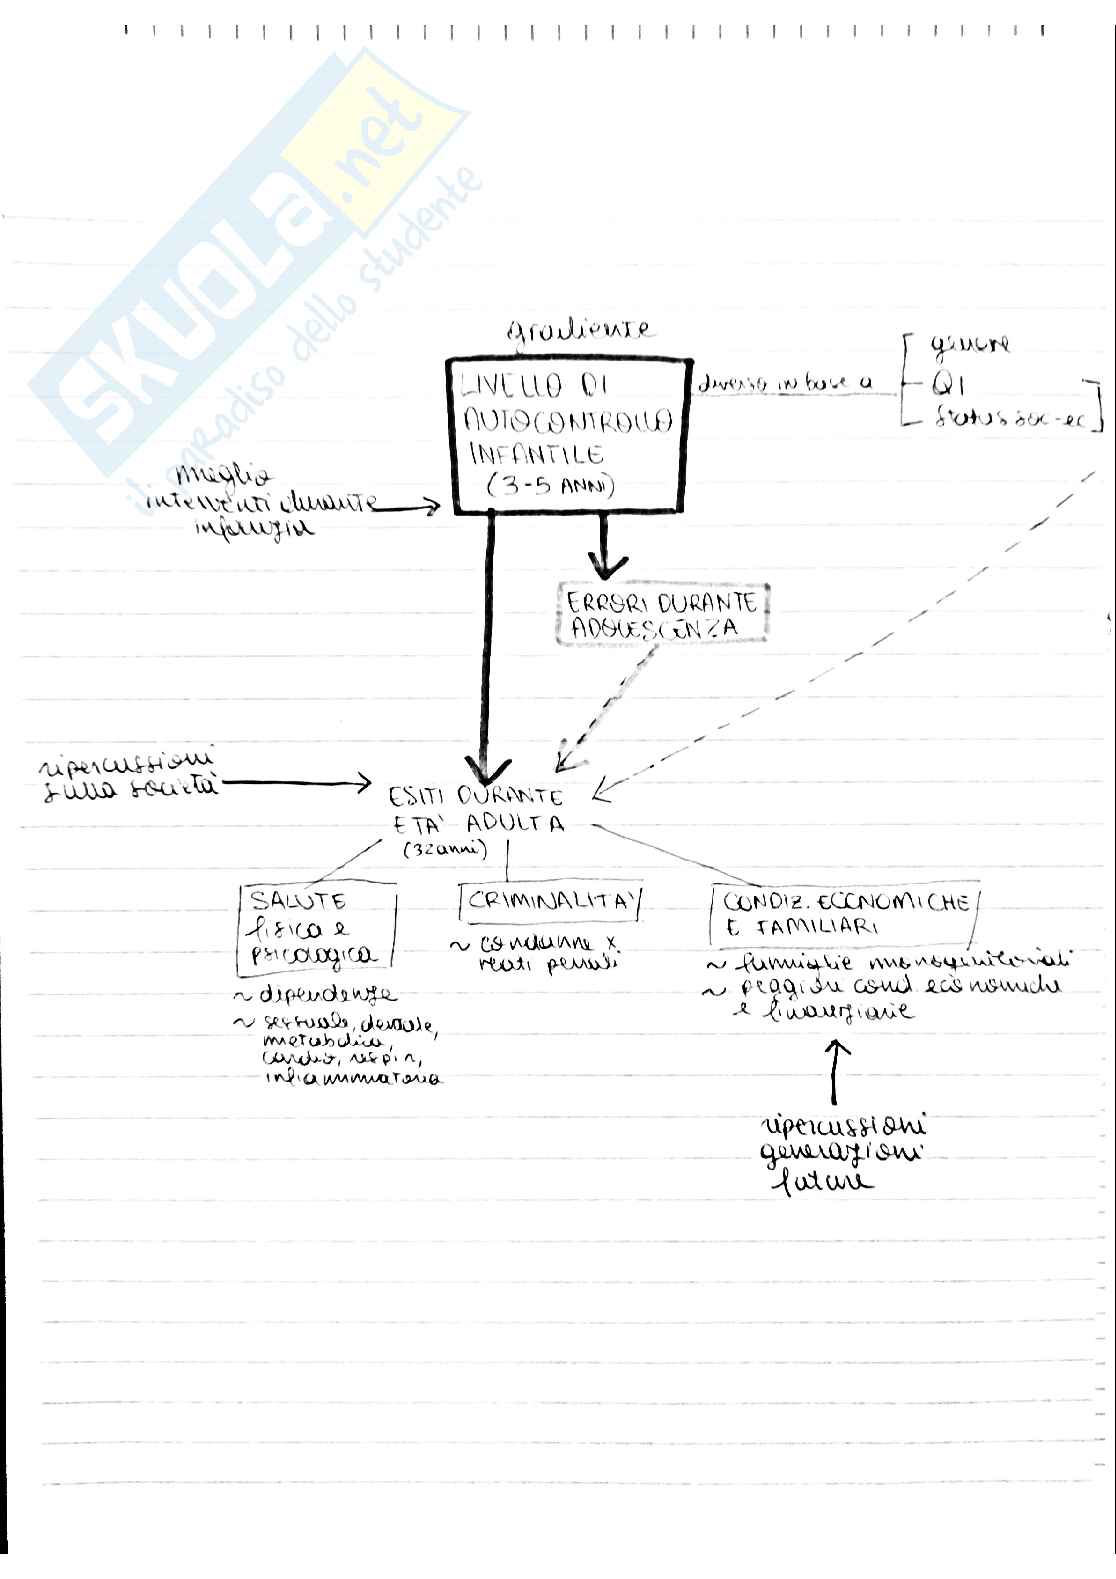 SKUOLA.net
il paradiso dello studente
gradiente
LIVELLO DI
AUTOCONTROLLO
INFANTILE
(3-5 ANNI)
diverso in base a
genere
QI
status soc-ec
meglio
interventi durante
infanzia
ERRORI DURANTE
ADOLESCENZA
ripercussioni
sulla società
ESITI DURANTE
ETA' ADULTA
(32 anni)
SALUTE
fisica e
psicologica
~ dipendenze
~ sessuale, dentale,
metabolica,
cardio, respir,
infiammatoria
CRIMINALITA'
~ condanne x
reati penali
CONDIZ. ECONOMICHE
E FAMILIARI
~ famiglie monogenitoriali
~ peggiori cond economiche
e finanziarie
ripercussioni
generazioni
future